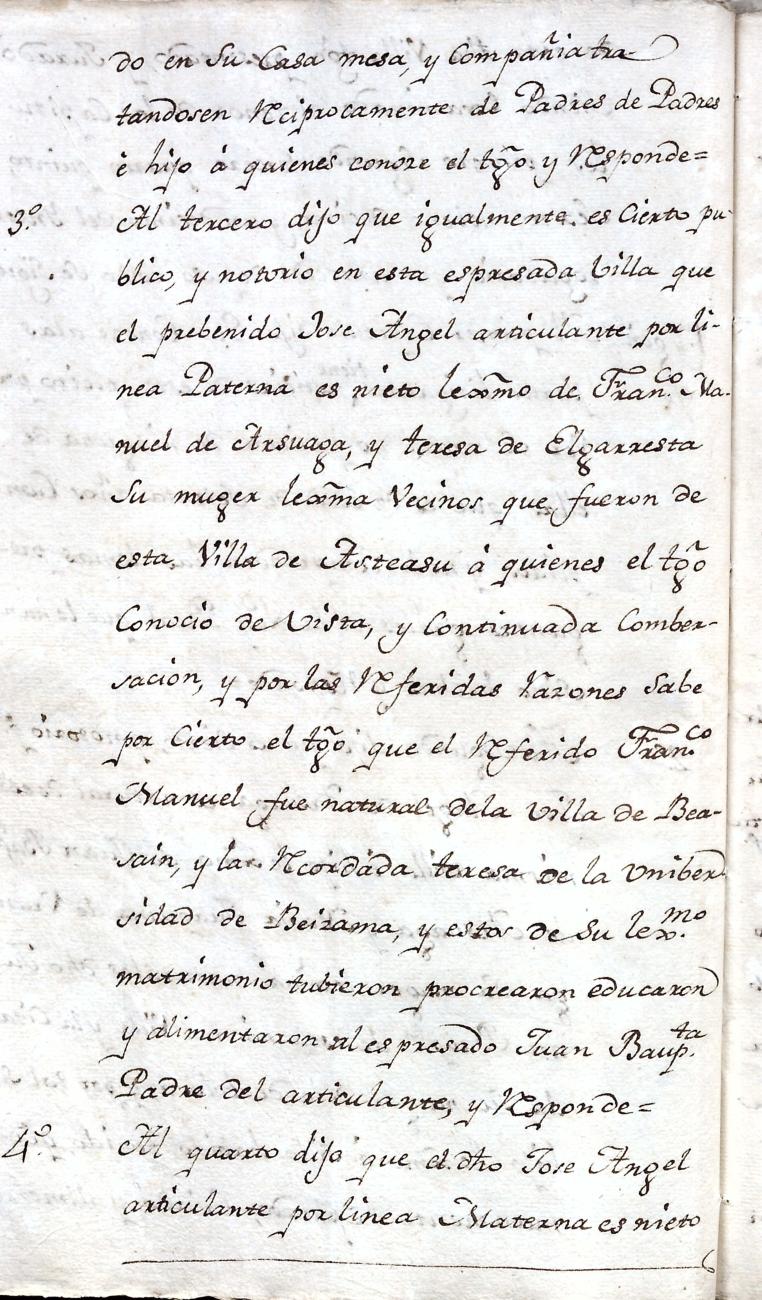 do en Su Casa mesa, y Compañia tra-
tandosen Reciprocamente de Padres de Padres
è hijo á quienes conoze el tg̃o y Responde=
3.º Al tercero dijo que igualmente es Cierto pu-
blico, y notorio en esta espresada Villa que
el prebenido Jose Angel articulante por li-
nea Paterna es nieto lexm̃o de Fran.co Ma-
nuel de Arsuaga, y teresa de Elgarresta
Su muger lexm̃a Vecinos que fueron de
esta Villa de Asteasu á quienes el tg̃o
Conocio de Vista, y Continuada Comber-
sacion, y por las Referidas Razones Sabe
por Cierto el tg̃o que el Referido Fran.co
Manuel fue natural dela Villa de Bea-
sain, y la Recordada teresa de la Uniber-
sidad de Beizama, y estos de Su lex.mo
matrimonio tubieron procrearon educaron
y alimentaron al espresado Juan Baup.ta
Padre del articulante, y Responde=
4.º Al quarto dijo que el dho Jose Angel
articulante por linea Materna es nieto